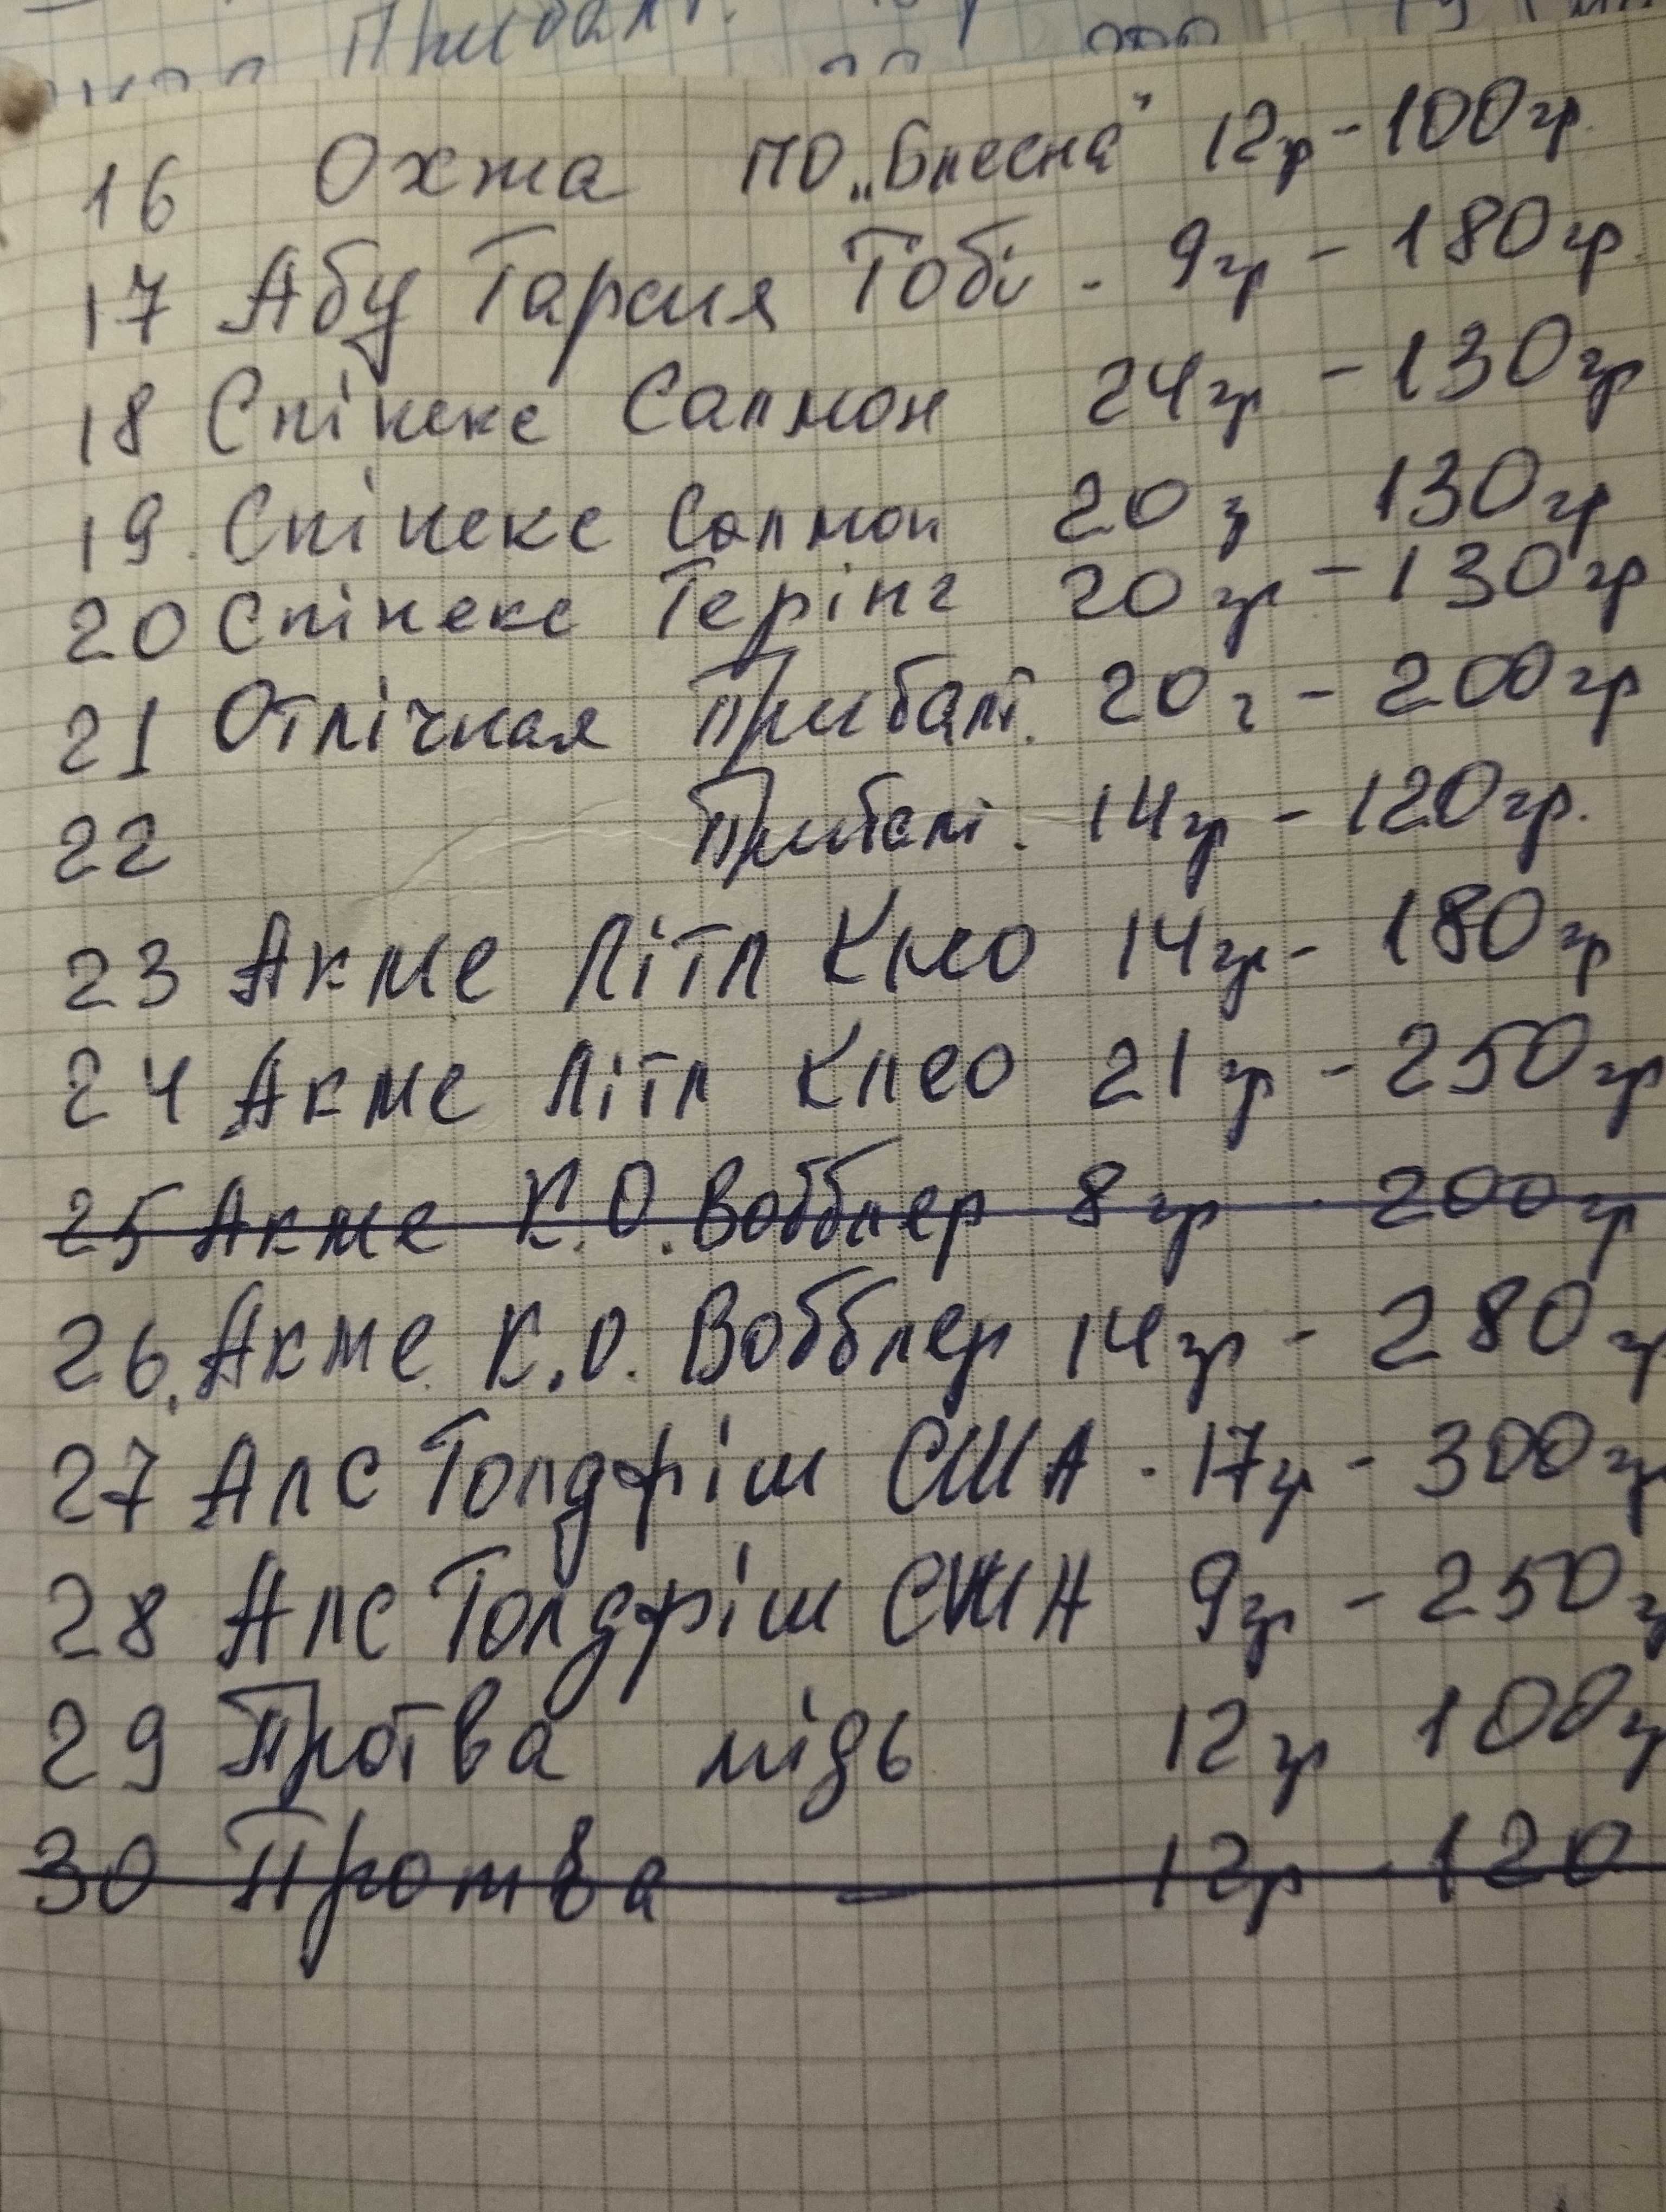 Прибалт.
16 Охта ПО „Блесна" 12гр - 100гр.
17 Абу Гарсия Тобі - 9гр - 180гр.
18 Спінекс Салмон 24гр - 130гр
19. Спінекс Салмон 20г 130гр
20 Спінекс Герінг 20гр - 130гр
21 Отлічная Прибалт. 20г - 200гр
22 Прибалт. 14гр - 120гр.
23 Акме Літл Клео 14гр - 180гр
24 Акме Літл Клео 21гр - 250гр
25 Акме К.О. Вобблер 8гр - 200гр
26. Акме К.О. Вобблер 14гр - 280гр
27 Алс Голдфіш США - 17гр - 300гр
28 Алс Голдфіш США 9гр - 250г
29 Протва мідь 12гр 100г
30 Протва — 12гр - 120